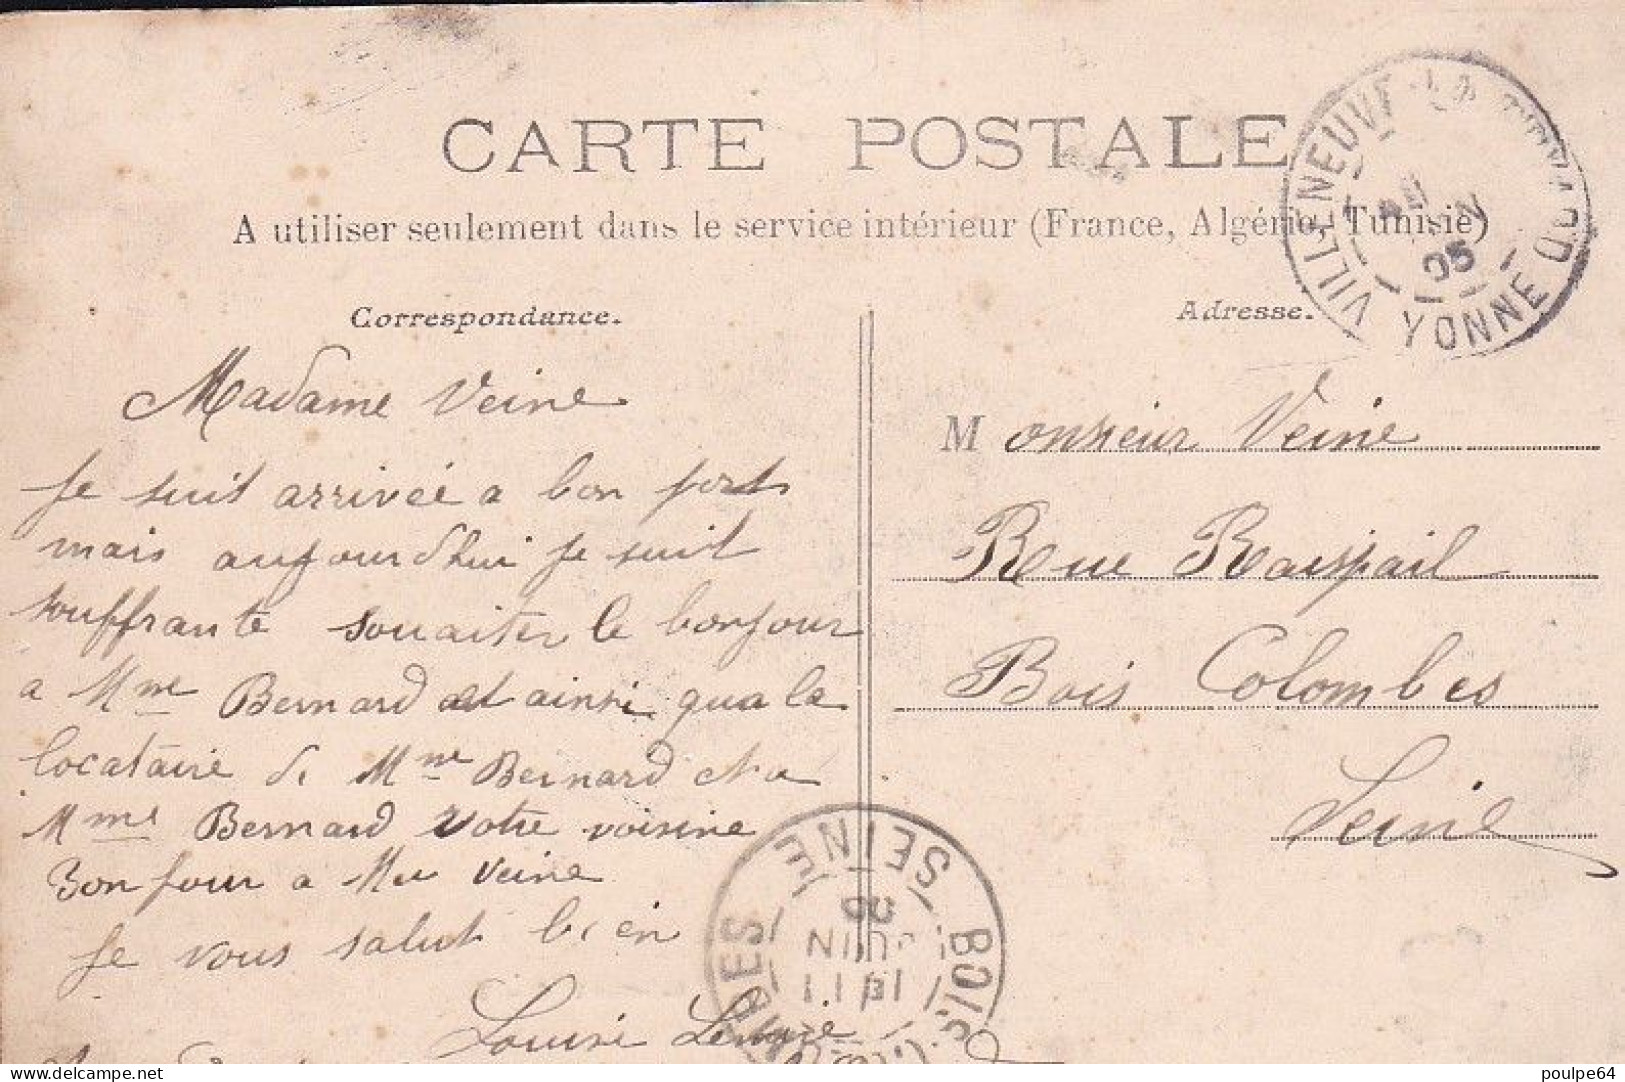 CARTE POSTALE
A utiliser seulement dans le service intérieur (France, Algérie, Tunisie)
VILLENEUVE LA
05
YONNE
Correspondance.
Adresse.
Madame Veine
Je suit arrivée a bon port
mais aujourdhui je suit
souffrante souaiter le bonjour
a Mme Bernard et ainsi qua la
locataire de Mme Bernard
Mme Bernard votre voisine
Bonjour a Veine
Je vous salut bien
Louise
Monsieur Veine
Rue Raispail
Bois Colombes
Seine
BOIS
SEINE
JUIN
Delcampe.net
poulpe64